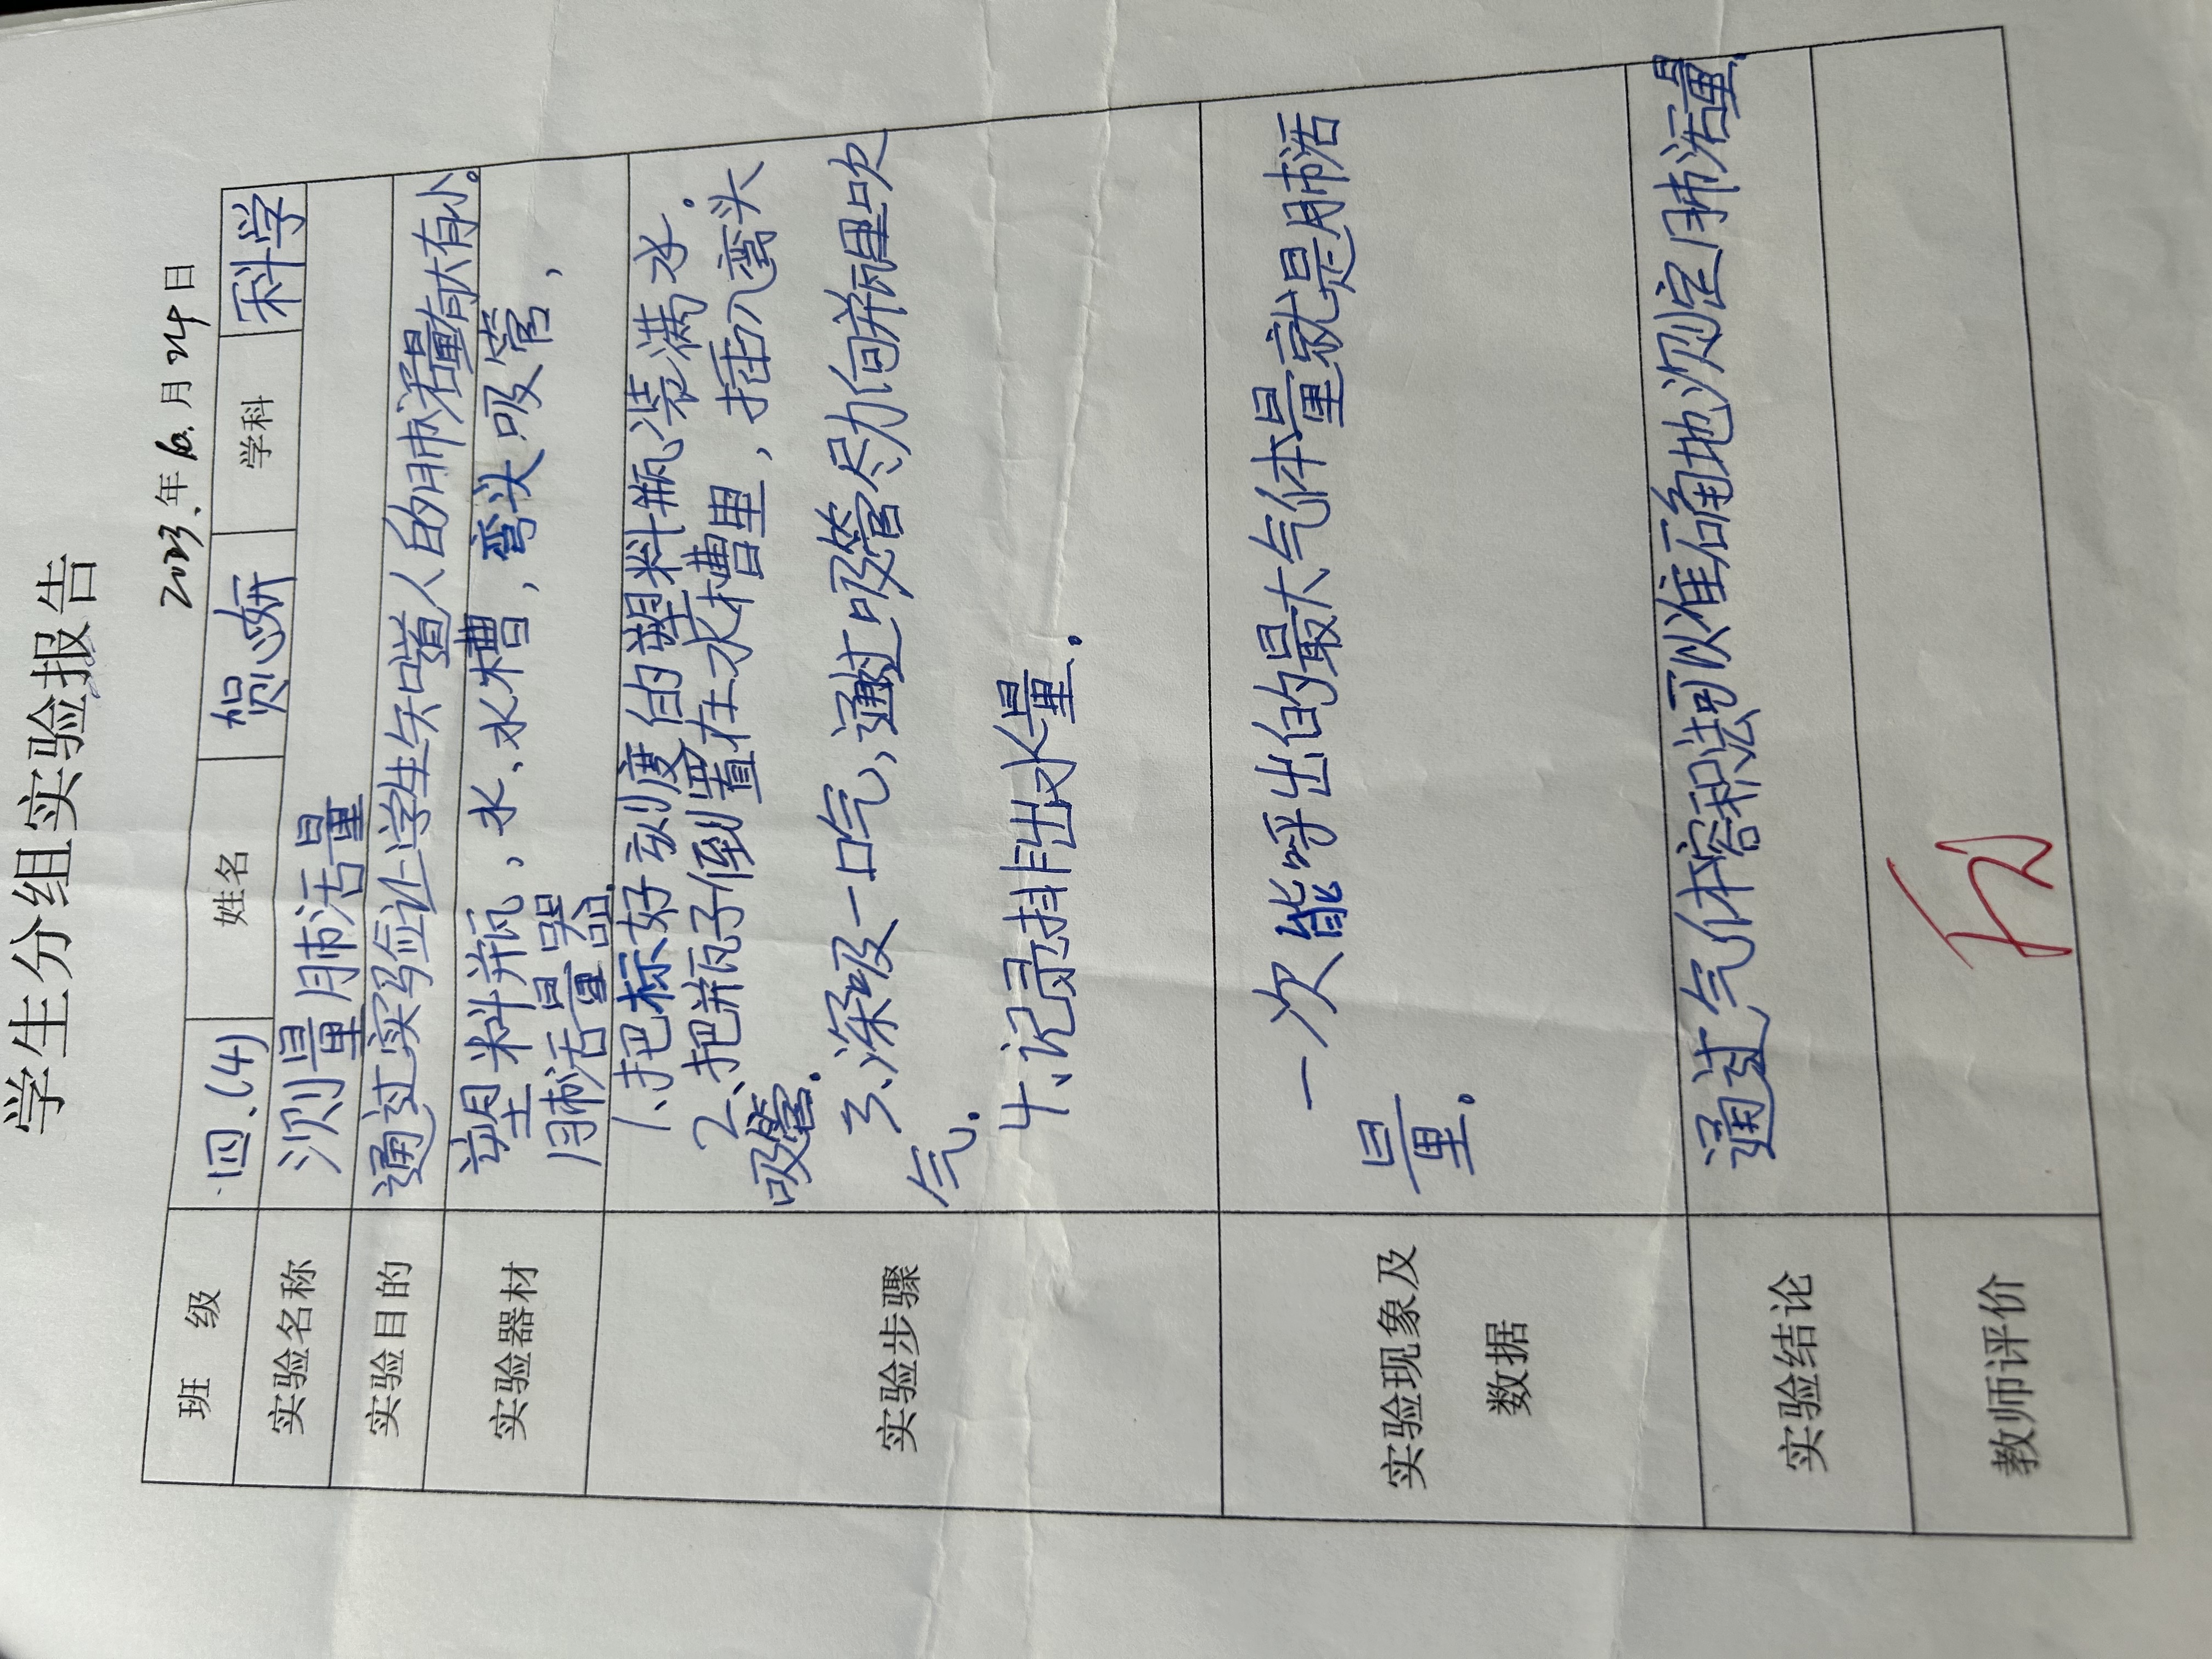 学生分组实验报告
2023年6月24日
班 级 四.(4) 姓名 贺心妍 学科 科学
实验名称 测量肺活量
实验目的 通过实验让学生知道人的肺活量有大有小。
实验器材 塑料瓶,水、水槽,弯头吸管,
肺活量器.
实验步骤 1、把标好刻度的塑料瓶装满水.
2、把瓶子倒置在水槽里,插入弯头
吸管.
3、深吸一口气,通过吸管尽力向瓶里吹
气.
4、记录排出水量.
实验现象及
数据
一次能呼出的最大气体量就是肺活
量.
实验结论 通过气体容积法可以准确地测定肺活量.
教师评价